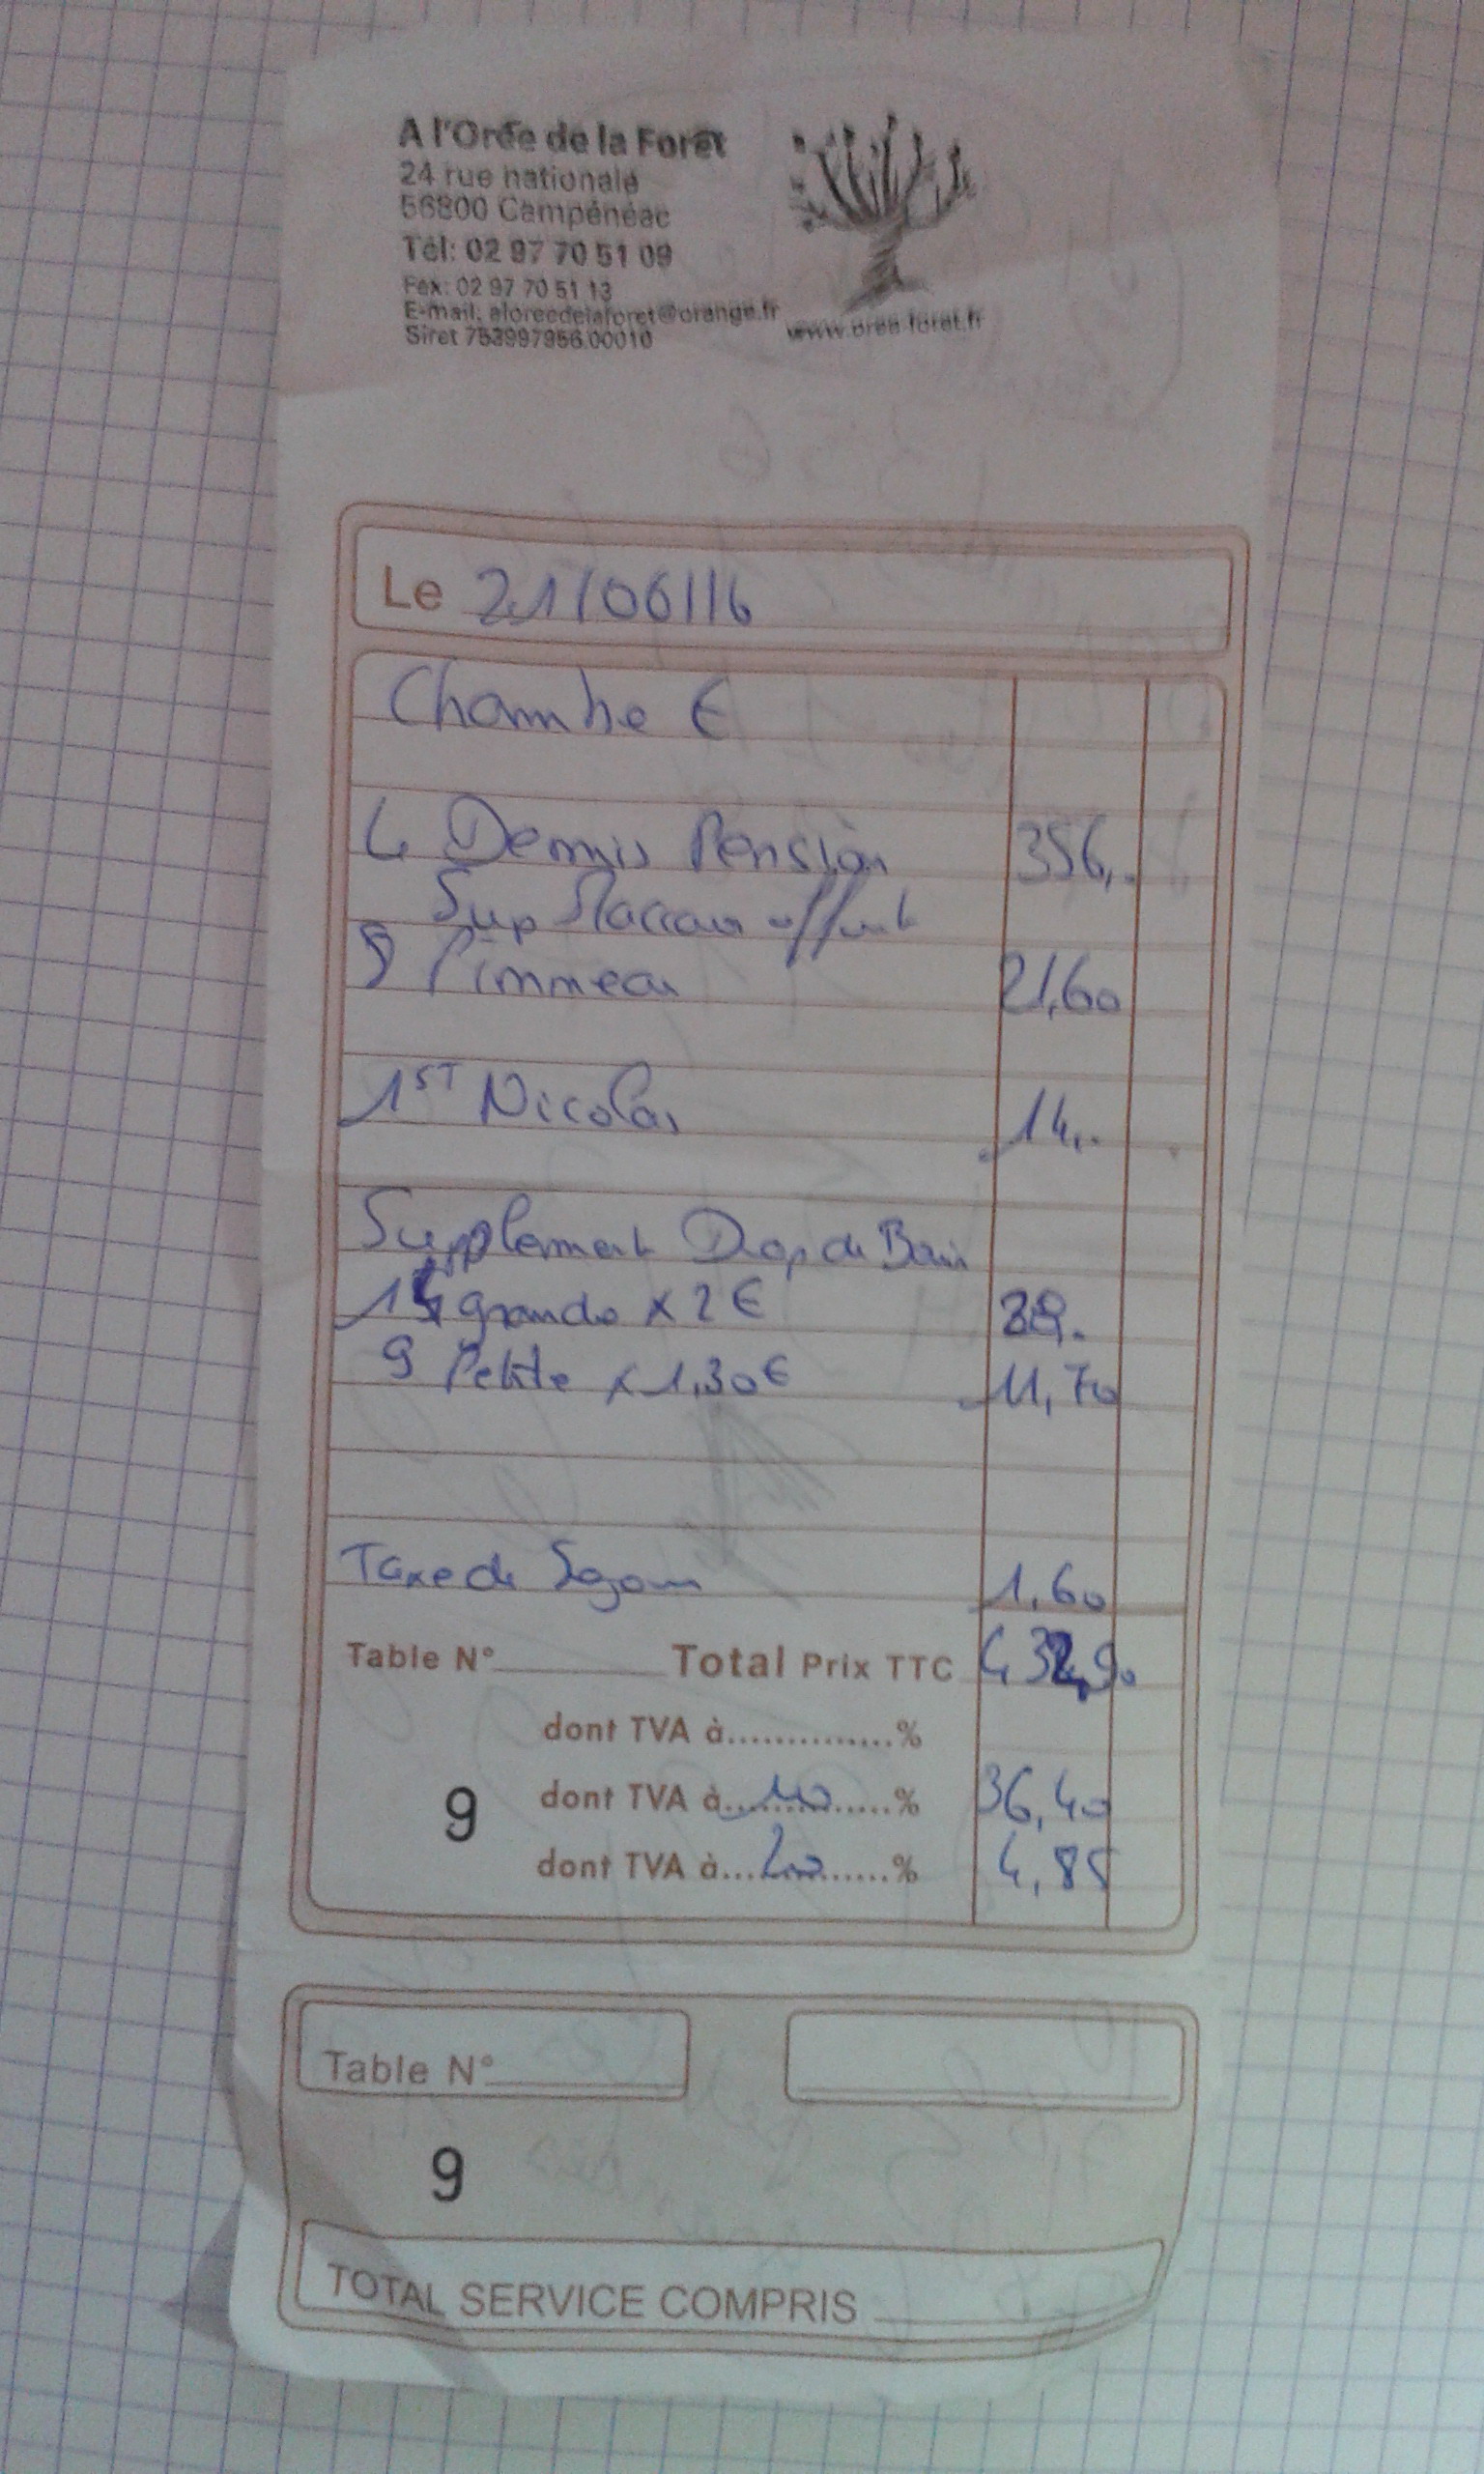 A l'Orée de la Forêt
24 rue nationale
56800 Campénéac
Tél: 02 97 70 51 09
Fax: 02 97 70 51 13
E-mail: aloreedelaforet@orange.fr
Siret 753997956.00010
www.oree-foret.fr
Le 21/06/16
Chambre E
4 Demis Pension 356,-
Sup offert
9 21,60
1 ST Nicolas 14,-
Supplement Drap de Bain
14 grande x 2 € 28.
9 Petite x 1,30 € 11,70
Taxe de Sejour 1,60
Table N° Total Prix TTC 432,90
dont TVA à..............%
9 dont TVA à...10...% 36,40
dont TVA à...20...% 4,85
Table N°
9
TOTAL SERVICE COMPRIS